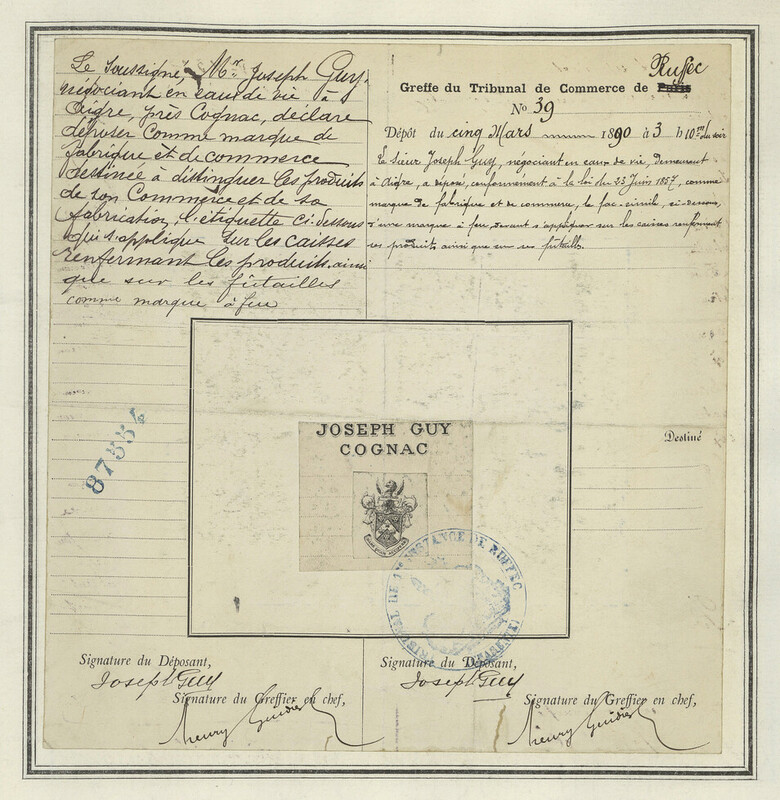 Le Soussigné, Mr Joseph Guy,
négociant en eau de vie à
Aigre, près Cognac, déclare
déposer comme marque de
fabrique et de commerce
destinée à distinguer les produits
de son Commerce et de sa
fabrication, l'étiquette ci-dessous
qui s'applique sur les caisses
renfermant les produits ainsi
que sur les fûtailles
comme marque à feu
Ruffec
Greffe du Tribunal de Commerce de Paris
No 39
Dépôt du cinq Mars 1890 à 3 h 10 m du soir
Le Sieur Joseph Guy, négociant en eaux de vie, demeurant
à Aigre, a déposé, conformément à la loi du 23 Juin 1857, comme
marque de fabrique et de commerce, le fac-simile, ci-dessous,
d'une marque à feu, devant s'appliquer sur les caisses renfermant
ses produits ainsi que sur ses fûtailles.
87554
JOSEPH GUY
COGNAC
Destiné
TRIBUNAL DE 1re INSTANCE DE RUFFEC
(CHARENTE)
Signature du Déposant,
Joseph Guy
Signature du Greffier en chef,
Signature du Déposant,
Joseph Guy
Signature du Greffier en chef,